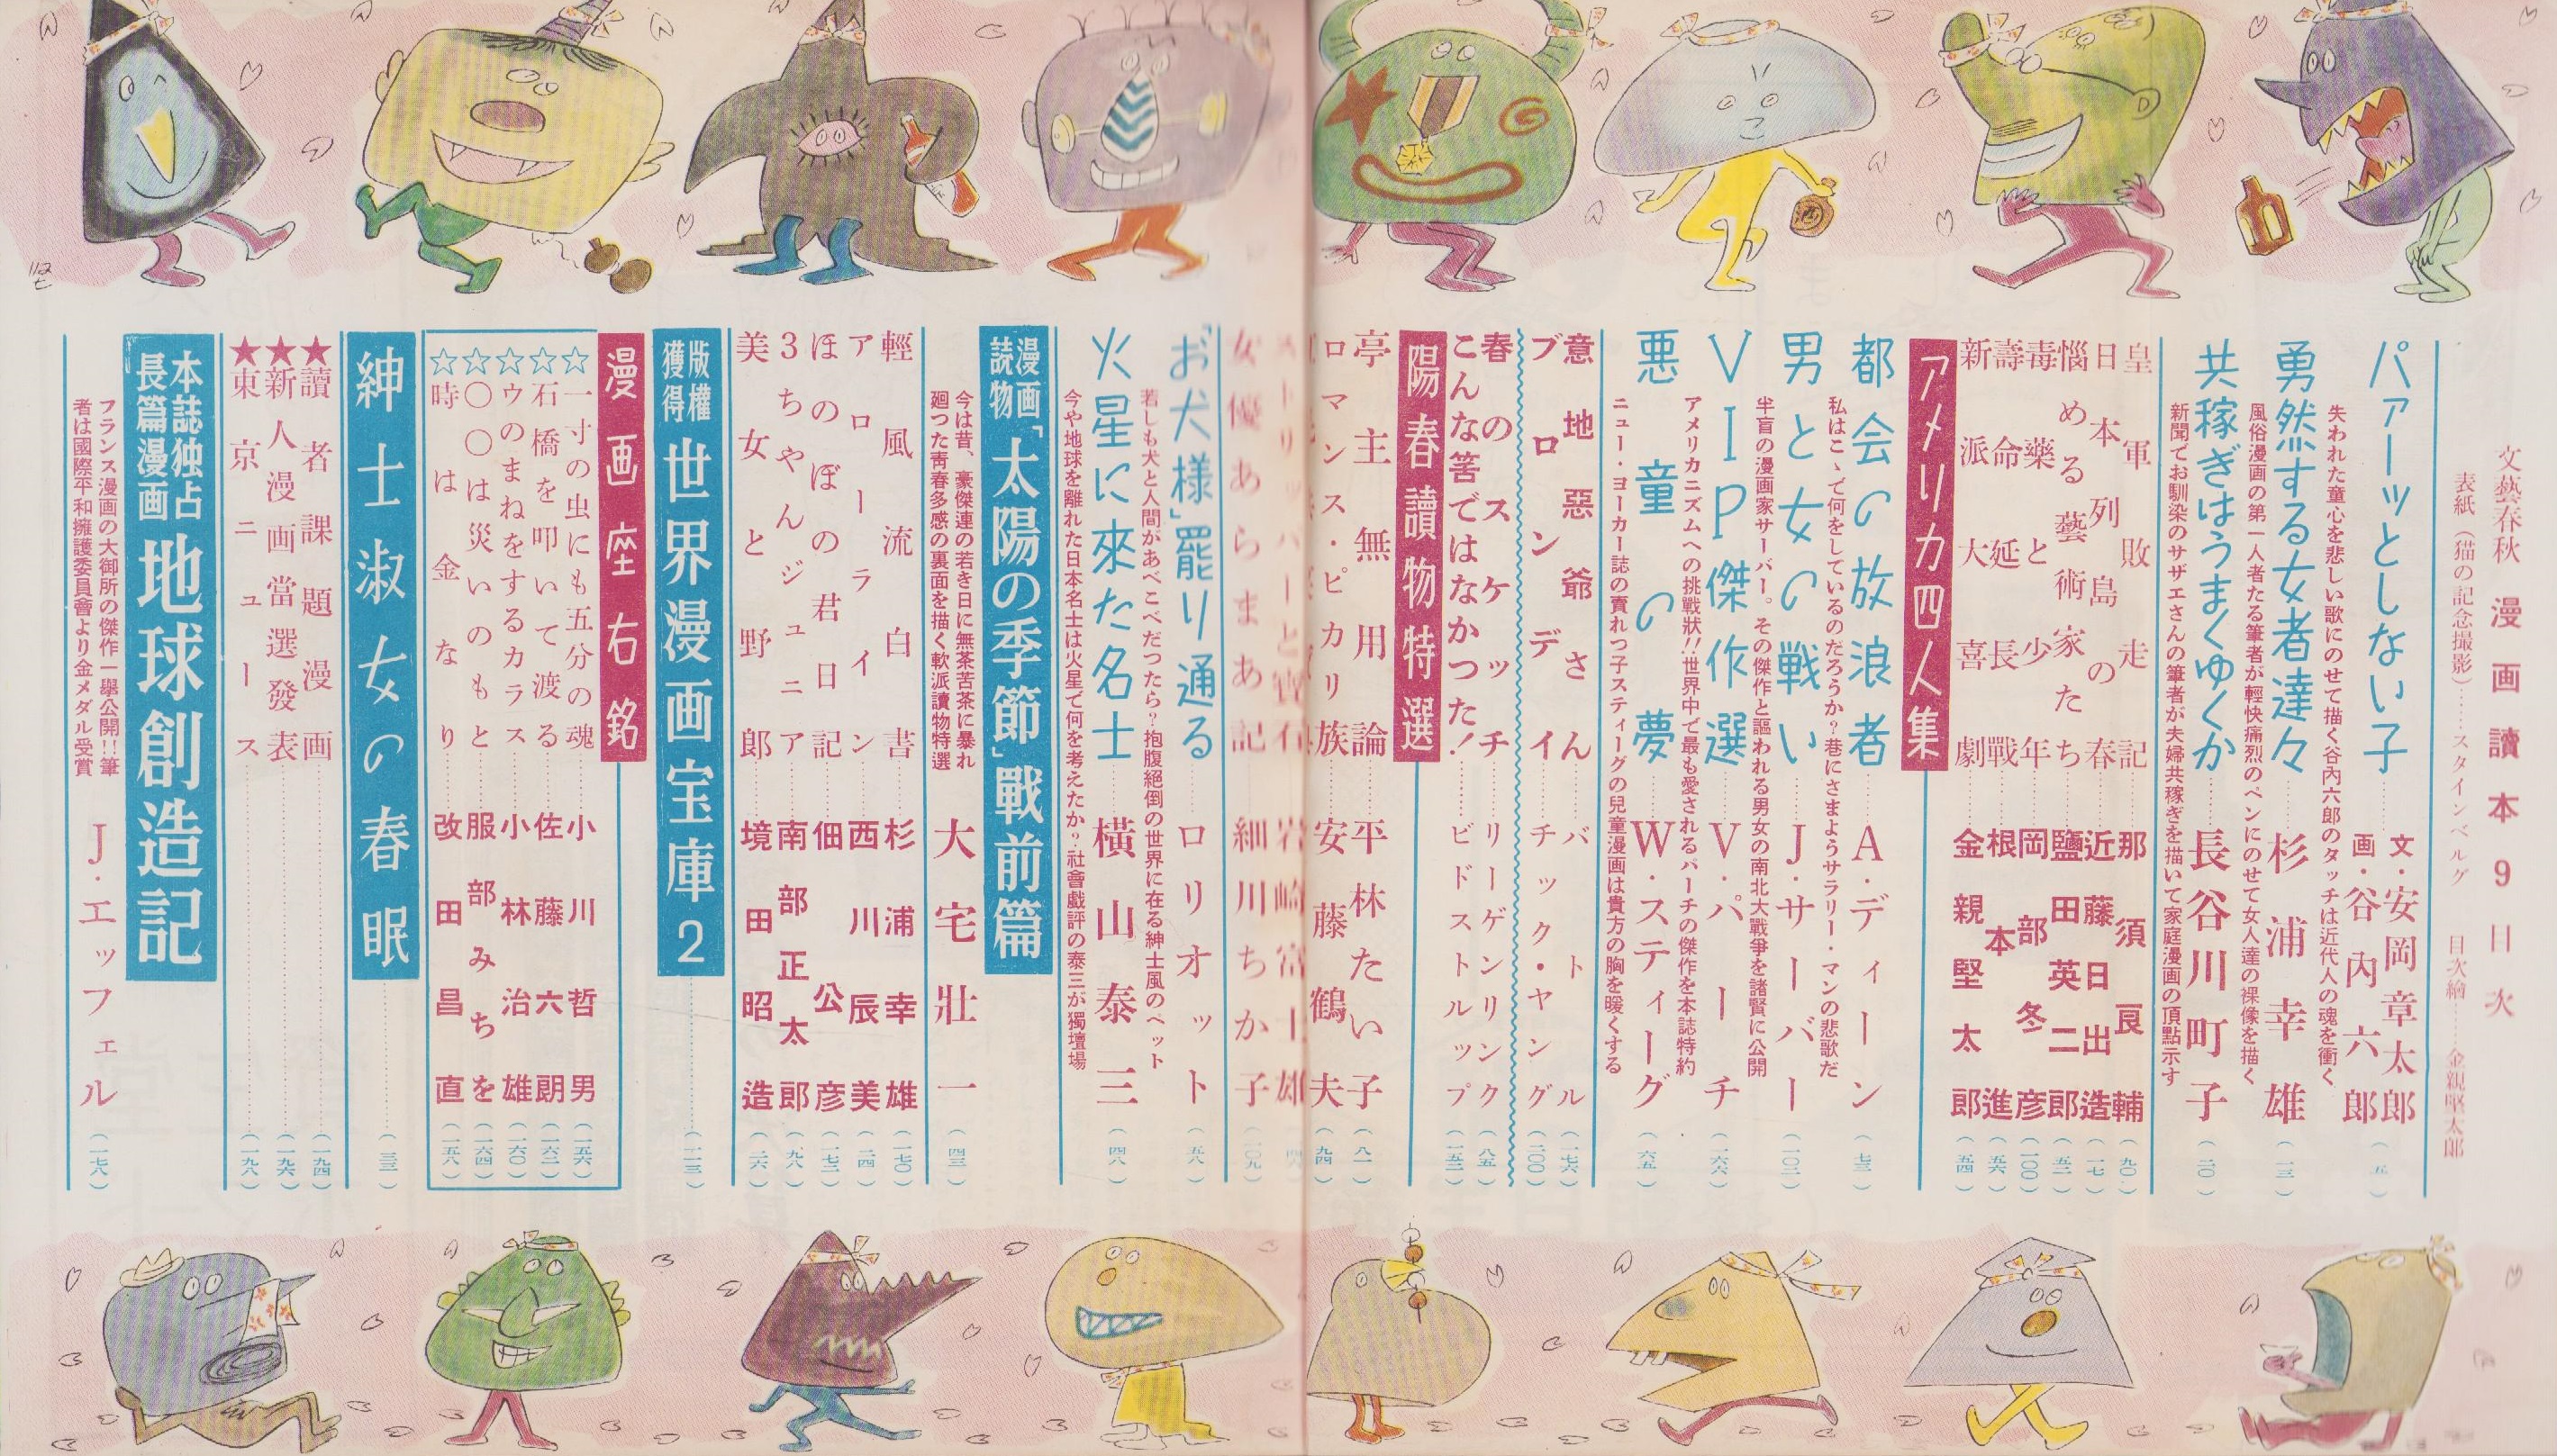 文藝春秋 漫画讀本 9 目次
表紙(猫の記念撮影)……スタインベルグ 目次繪……金親堅太郎
パァーッとしない子
失われた童心を悲しい歌にのせて描く谷内六郎のタッチは近代人の魂を衝く
文・安岡章太郎
画・谷内六郎
(五)
勇然する女者達々……杉浦幸雄(一三)
風俗漫画の第一人者たる筆者が輕快痛烈のペンにのせて女人達の裸像を描く
共稼ぎはうまくゆくか……長谷川町子(二〇)
新聞でお馴染のサザエさんの筆者が夫婦共稼ぎを描いて家庭漫画の頂點示す
皇軍敗走記……那須良輔(九〇)
日本列島の春……近藤日出造(一七)
惱める藝術家たち……鹽田英二郎(五二)
毒藥と少年……岡部冬彦(一〇〇)
壽命延長戰……根本進(五六)
新派大喜劇……金親堅太郎(五四)
アメリカ四人集
都会の放浪者……A・ディーン(七三)
私はこゝで何をしているのだろうか?巷にさまようサラリー・マンの悲歌だ
男と女の戦い……J・サーバー(一〇二)
半盲の漫画家サーバー。その傑作と謳われる男女の南北大戰爭を諸賢に公開
VIP傑作選……V・パーチ(一六六)
アメリカニズムへの挑戰狀!!世界中で最も愛されるパーチの傑作を本誌特約
悪童の夢……W・スティーグ(六五)
ニュー・ヨーカー誌の賣れっ子スティーグの兒童漫画は貴方の胸を暖くする
意地惡爺さん……バトル(一七六)
ブロンディ……チック・ヤング(二〇〇)
春のスケッチ……リーゲンリンク(八五)
こんな筈ではなかった!……ビドストルップ(一五二)
陽春讀物特選
亭主無用論……平林たい子(八一)
ロマンス・ピカリ族……安藤鶴夫(九四)
岩崎富士雄
女優あらまあ記……細川ちか子(一〇九)
「お犬様」罷り通る……ロリオット(五八)
若しも犬と人間があべこべだつたら?抱腹絕倒の世界に在る紳士風のペット
火星に來た名士……横山泰三(四八)
今や地球を離れた日本名士は火星で何を考えたか?社會戲評の泰三が獨壇場
漫画読物「太陽の季節」戰前篇
今は昔、豪傑連の若き日に無茶苦茶に暴れ
廻つた靑春多感の裏面を描く軟派讀物特選
大宅壯一(四三)
輕風流白書……杉浦幸雄(一七〇)
アローライン……西川辰美(二四)
ほのぼの君日記……佃公彦(一七二)
3ちゃんジュニア……南部正太郎(九八)
美女と野郎……境田昭造(二六)
版權獲得 世界漫画宝庫2……(一一三)
漫画座右銘
☆一寸の虫にも五分の魂……小川哲男(一五六)
☆石橋を叩いて渡る……佐藤六朗(一六二)
☆ウのまねをするカラス……小林治雄(一六〇)
☆〇〇は災いのもと……服部みちを(一六四)
☆時は金なり……改田昌直(一五八)
紳士淑女の春眠……(三三)
★讀者課題漫画……(一九四)
★新人漫画當選發表……(一九六)
★東京ニュース……(一九八)
本誌独占長篇漫画 地球創造記
フランス漫画の大御所の傑作一擧公開!!筆
者は國際平和擁護委員會より金メダル受賞
J・エッフェル(一七八)